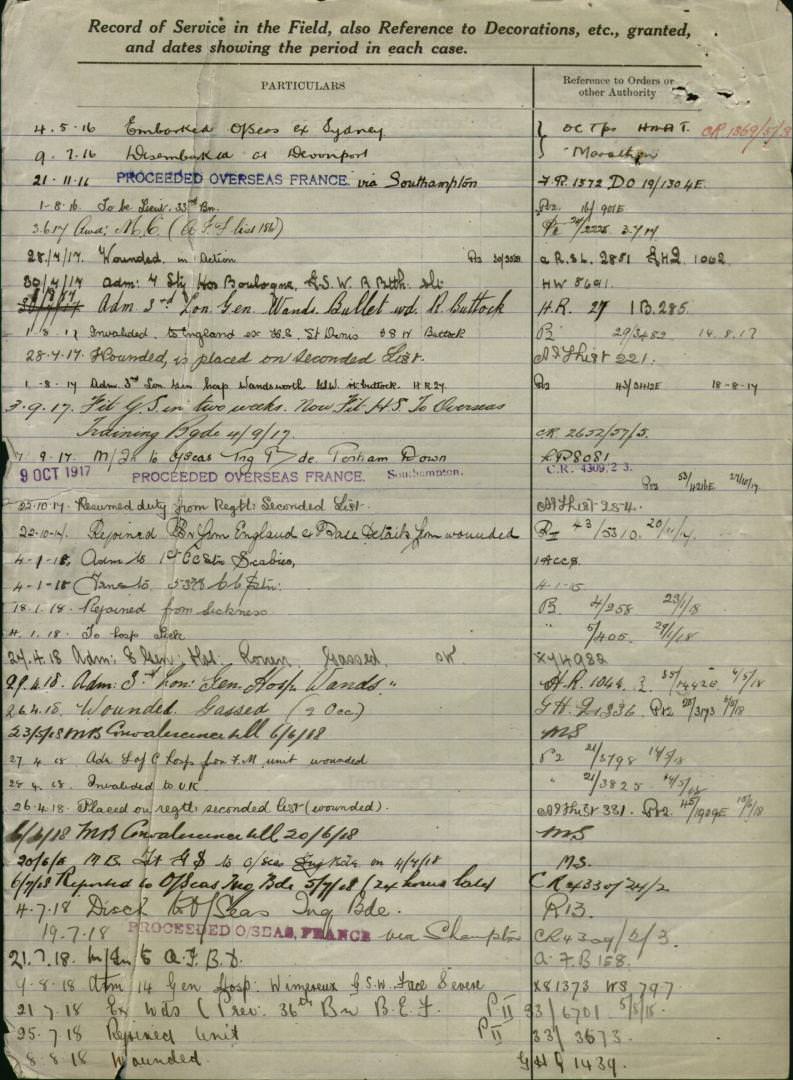 Record of Service in the Field, also Reference to Decorations, etc., granted,
and dates showing the period in each case.
PARTICULARS
Reference to Orders or
other Authority
4.5.16 Embarked O/Seas ex Sydney } OC Tps H.M.A.T. CR 1369/5/3
9.7.16 Disembarked at Devonport } "Marathon
21.11.16 PROCEEDED OVERSEAS FRANCE. via Southampton F.R. 1572 DO 19/1304E.
1-8.16. To be Lieut. 33rd Bn.
3.6.17 Awd: M.C.
28/4/17. Wounded in Action GHQ 1062
30/4/17 adm: 7 Sty Hos Boulogne, G.S.W. R Butt. Sli HW 5691.
Adm 3rd Lon Gen. Wands. Bullet wd. R. Buttock H.R. 27 1B.285.
1.8.17 Invalided to England ex H.S. St Denis G S W Buttock 14.8.17
28.4.17. Wounded, is placed on seconded List. 221.
1-8-17 Adm. 3rd Lon Gen hosp Wandsworth G.S.W. buttock. H R 27. 18-8-17
3.9.17. Fit G.S. in two weeks. Now Fit H.S. To Overseas
Training Bgde 4/9/17 CR. 2652/57/5.
9.17. M/In to O/seas Tng Bde. Tortham Down 8081
9 OCT 1917 PROCEEDED OVERSEAS FRANCE. Southampton. C.R. 4309/2 3.
22-10.17. Resumed duty from Regtl: Seconded List. 254.
22-10-17. Rejoined Bn from England & Base Details from wounded 43/5310.
4-1-18, Adm to 1st CC Stn Scabies, 1ACCS.
4-1-18 Trans to. 53rd C C Stn:
18.1.18. Rejoined from Sickness B. 4/258 23/1/18
4.1.18. To hosp Sick " 5/405. 29/1/18
27.4.18 Adm: 8 Gen: Hos: Rouen, Gassed, XY4982
29.4.18. Adm: 3rd Lon: Gen. Hosp. Wands. " H.R. 1044.
26.4.18. Wounded Gassed (2 Occ) G.H.Q 1336.
23/5/18 MB Convalescence till 6/6/18 MS
27.4.18 Adm L of C hosp from F.M. unit wounded 21/3798
28.4.18. Invalided to U.K " 21/3825
26.4.18. Placed on regtl seconded list (wounded). 331.
6/6/18 MB Convalescence till 20/6/18 MS
20/6/18 M B Fit G S to O/Seas Tng Bde on 4/7/18 M.S.
6/7/18 Reported to O/Seas Tng Bde 5/7/18 (24 hours late) CR 4330/24/2
4.7.18 Disch to O/Seas Tng Bde. R13.
19.7.18 PROCEEDED O/SEAS, FRANCE via Shampton CR 4309/2/3.
21.7.18. M/In to A.I.B.D. A.F.B 158.
9-8-18 Adm 14 Gen Hosp: Wimereux G.S.W. Face Severe X81373 WS 797
21 7.18 Ex Wds (Prev: 36th Bn B.E.F. P II 33/6701
25.7.18 Rejoined Unit P II 33/3673
8.8.18 Wounded. GHQ 1439.